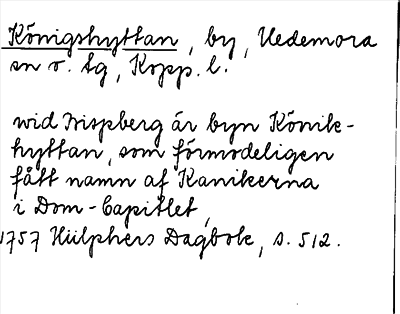 Königshyttan, by, Uedemora
sn o. tg, Kopp. l.
wid Wispberg är byn Könik-
hyttan, som förmodeligen
fått namn af Kanikerna
i Dom-Capitlet,
1757 Hülphers Dagbok, s. 512.